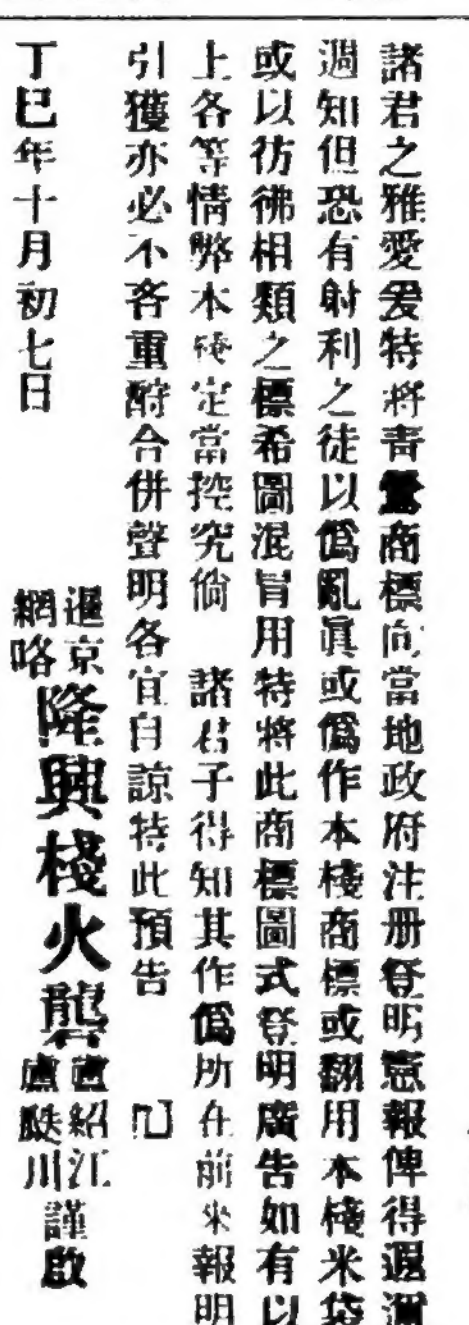 諸君之雅愛爰特將青鶯商標向當地政府注册登明憲報俾得遐邇
週知但恐有射利之徒以僞亂眞或僞作本棧商標或翻用本棧米袋
或以彷彿相類之標希圖混冒用特將此商標圖式登明廣告如有以
上各等情弊本棧定當控究倘 諸君子得知其作僞所在前來報明
引獲亦必不吝重酧合併聲明各宜自諒特此預告
丁巳年十月初七日
暹京
網咯
隆興棧火礱
盧紹江
盧 川
謹啟